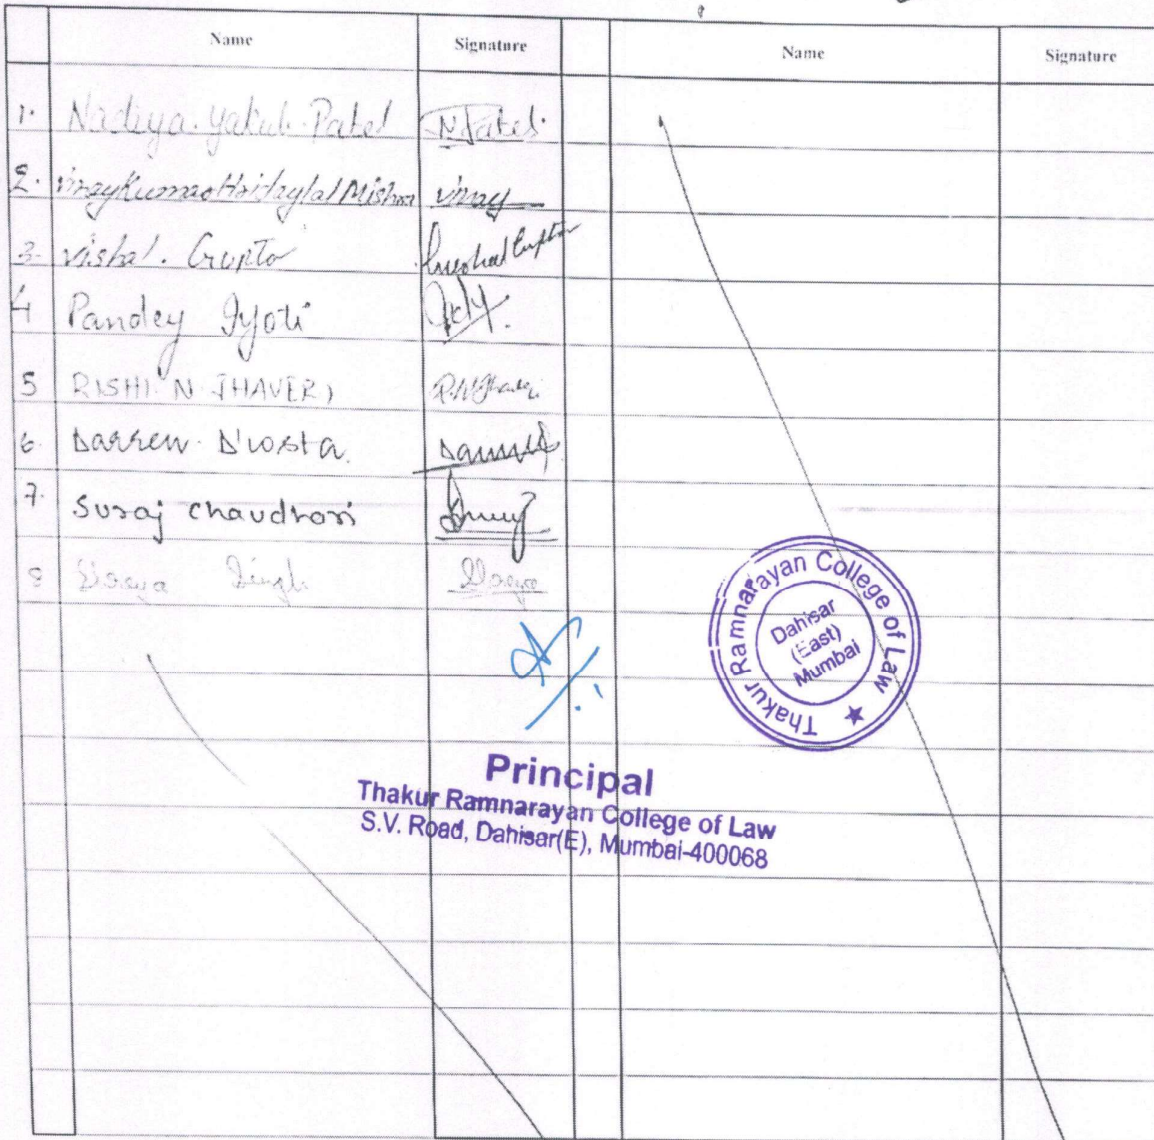 Name Signature Name Signature
1. Nadiya. Yakub. Patel N.Patel.
2. Vinaykumar Hridaylal Mishra vinay
3. Vishal. Gupta Vishal Gupta
4 Pandey Jyoti
5 RISHI N JHAVERI R.N.Jhaveri
6. Darren D'costa.
7. Suraj chaudhari
8 Singh
Thakur Ramnarayan College of Law
Dahisar
(East)
Mumbai
Principal
Thakur Ramnarayan College of Law
S.V. Road, Dahisar(E), Mumbai-400068